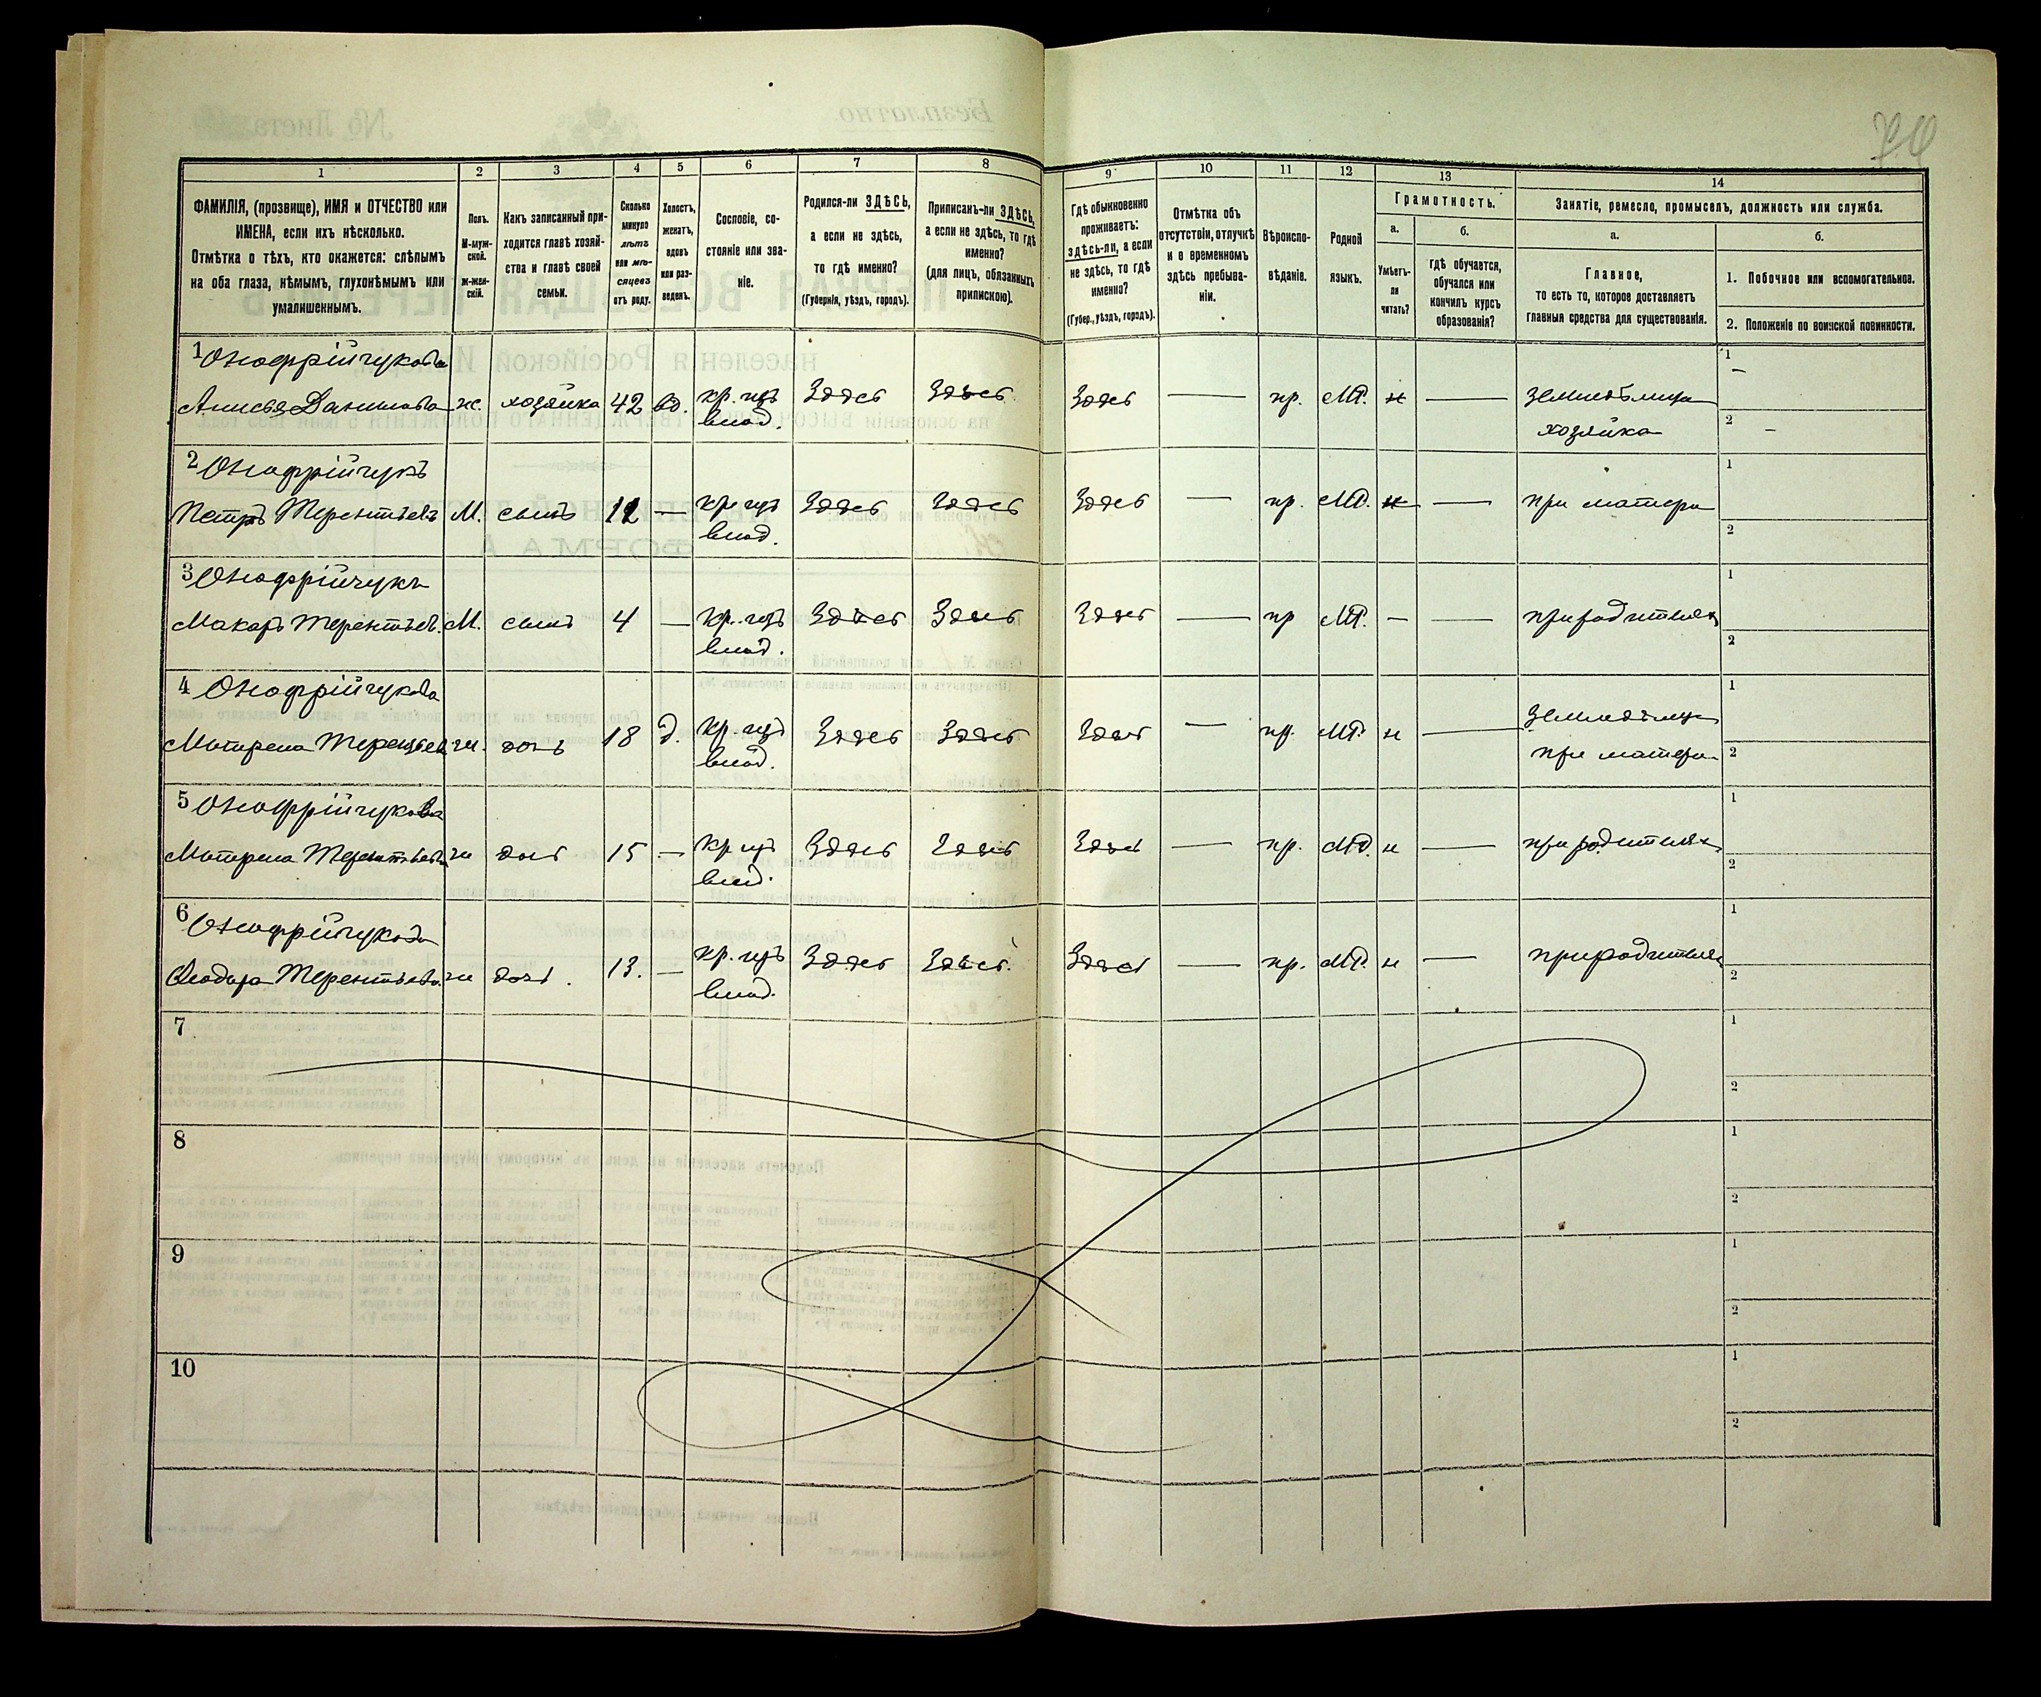 74
1 2 3 4 5 6 7 8 9 10 11 12 13 14
ФАМИЛІЯ, (прозвище), ИМЯ и ОТЧЕСТВО или ИМЕНА, если ихъ нѣсколько.
Отмѣтка о тѣхъ, кто окажется: слѣпымъ на оба глаза, нѣмымъ, глухонѣмымъ или умалишеннымъ.
Полъ.
М-мужской.
Ж-женскій.
Какъ записанный приходится главѣ хозяйства и главѣ своей семьи.
Сколько минуло лѣтъ или мѣсяцевъ отъ роду.
Холостъ, женатъ, вдовъ или разведенъ.
Сословіе, состояніе или званіе.
Родился-ли ЗДѢСЬ, а если не здѣсь, то гдѣ именно?
(Губернія, уѣздъ, городъ).
Приписанъ-ли ЗДѢСЬ, а если не здѣсь, то гдѣ именно?
(для лицъ, обязанныхъ припискою).
Гдѣ обыкновенно проживаетъ: здѣсь-ли, а если не здѣсь, то гдѣ именно?
(Губер., уѣздъ, городъ).
Отмѣтка объ отсутствіи, отлучкѣ и о временномъ здѣсь пребываніи.
Вѣроисповѣданіе.
Родной языкъ.
Грамотность.
а. Умѣетъ-ли читать?
б. гдѣ обучается, обучался или кончилъ курсъ образованія?
Занятіе, ремесло, промыселъ, должность или служба.
а. Главное,
то есть то, которое доставляетъ главныя средства для существованія.
б.
1. Побочное или вспомогательное.
2. Положеніе по воинской повинности.
1 Онофрійчукова 1 —
Анисья Данилова ж. хозяйка 42 вд. кр. изъ влад. Здѣсь Здѣсь Здѣсь — пр. МР. н — земледѣлица хозяйка 2 —
2 Онофрійчукъ 1
Петръ Терентьевъ М. сынъ 12 — кр. изъ влад. Здѣсь Здѣсь Здѣсь — пр. МР. н — при матери 2
3 Онофрійчукъ 1
Макаръ Терентьев. М. сынъ 4 — кр. изъ влад. Здѣсь Здѣсь Здѣсь — пр МР. — — при родителях 2
4 Онофрійчукова 1
Матрена Терентьев ж. дочь 18 д. кр. изъ влад. Здѣсь Здѣсь Здѣсь — пр. МР. н — при матери 2
5 Онофрійчукова 1
Матрена Терентьева ж дочь 15 — кр изъ влад. Здѣсь Здѣсь Здѣсь — пр. МР. н — при родителях 2
6 Онофрійчукова 1
Ѳеодора Терентьева ж дочь 13. — кр. изъ влад. Здѣсь Здѣсь. Здѣсь — пр. МР. н — при родителях 2
7 1
2
8 1
2
9 1
2
10 1
2